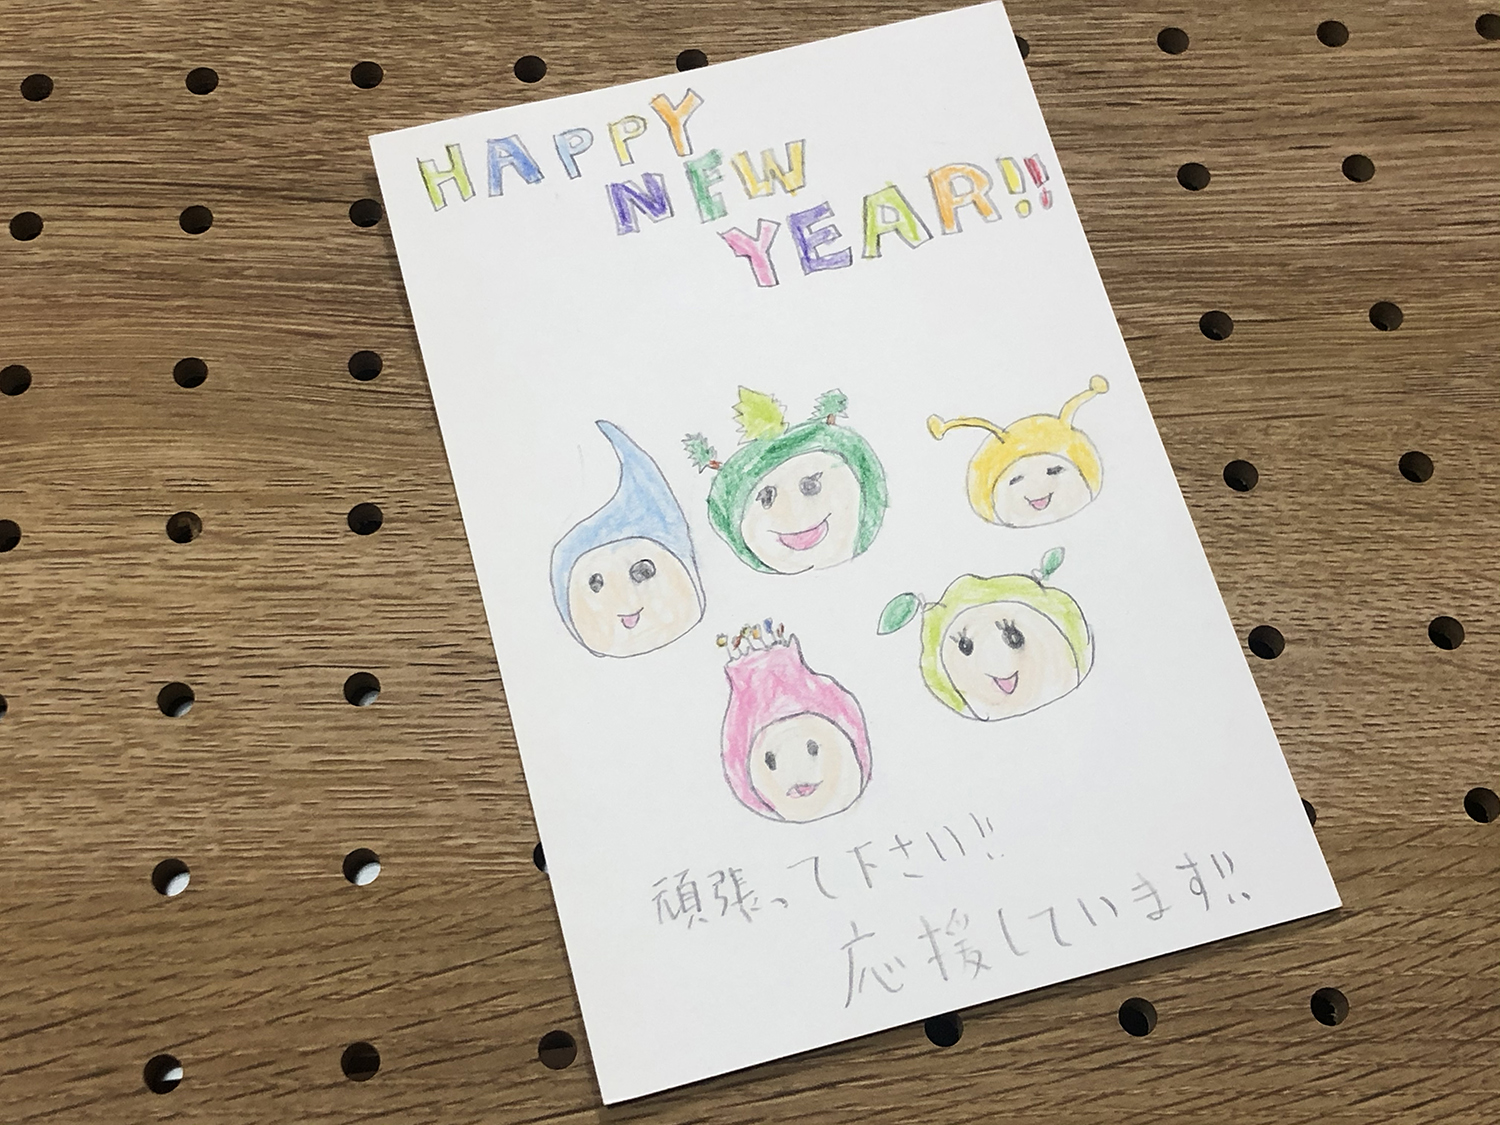 HAPPY
NEW
YEAR!!
頑張って下さい!!
応援しています!!